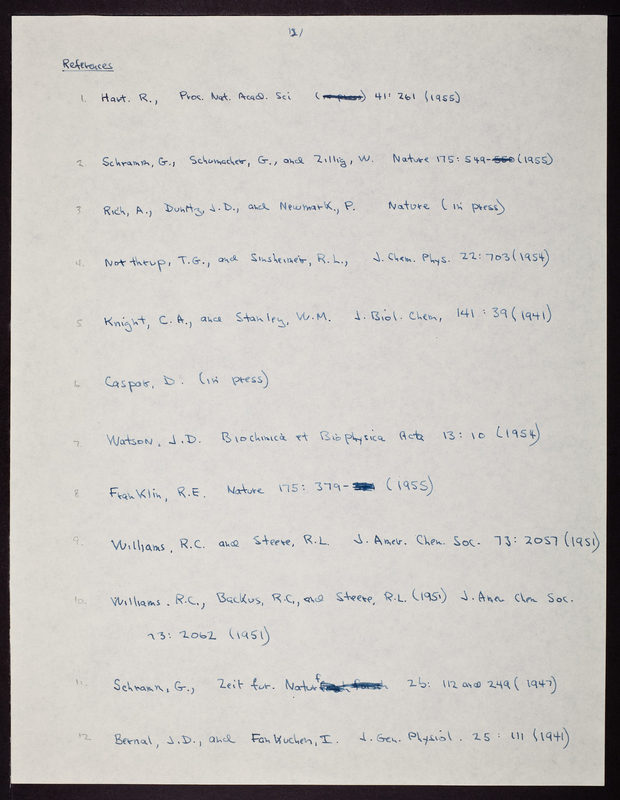 11/
References
1. Hart. R., Proc. Nat. Acad. Sci ( ) 41: 261 (1955)
2. Schramm, G., Schumacher, G., and Zillig, W. Nature 175: 549- (1955)
3 Rich, A., Dunitz, J.D., and Newmark, P. Nature (in press)
4. Northrup, T.G., and Sinsheimer, R.L., J. Chem. Phys. 22: 703 (1954)
5 Knight, C.A., and Stanley, W.M. J. Biol. Chem, 141: 39 (1941)
6 Caspar, D. (in press)
7 Watson, J.D. Biochimica et Biophysica Acta 13: 10 (1954)
8 Franklin, R.E. Nature 175: 379- (1955)
9. Williams, R.C. and Steere, R.L. J. Amer. Chem. Soc. 73: 2057 (1951)
10. Williams. R.C., Backus, R.C., and Steere, R.L. (1951) J. Amer Chem Soc.
73: 2062 (1951)
11. Schramm, G., Zeit fur. Naturf 2b: 112 and 249 (1947)
12 Bernal, J.D., and Fankuchen, I. J. Gen. Physiol. 25: 111 (1941)